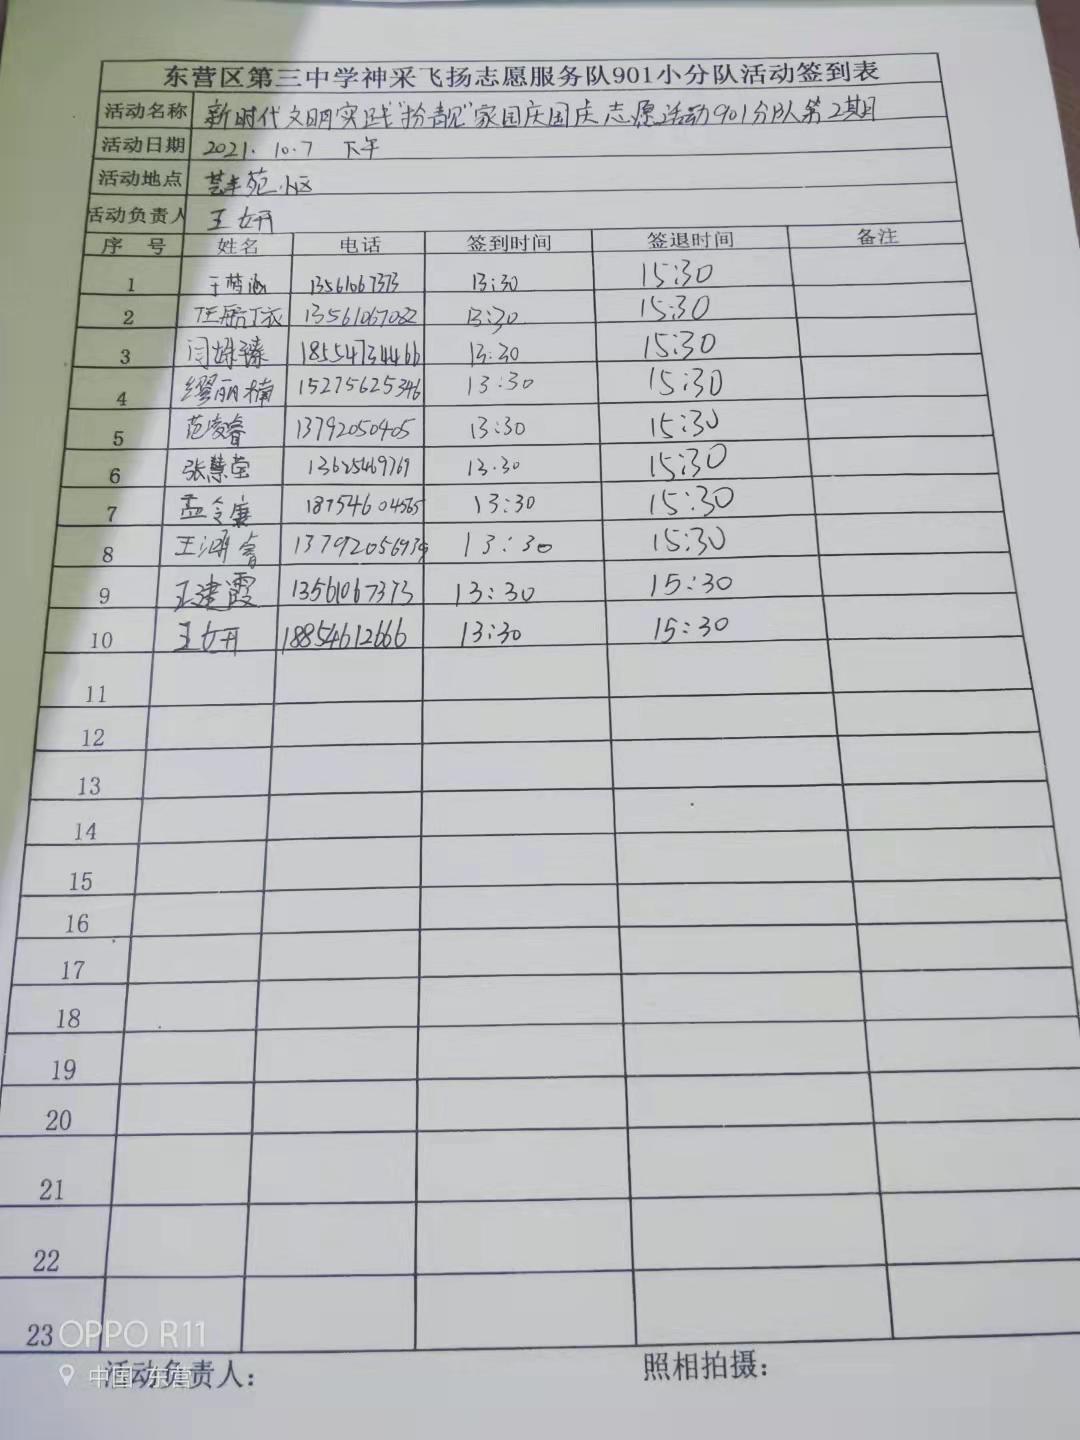 东营区第三中学神采飞扬志愿服务队901小分队活动签到表
活动名称 新时代文明实践"扮靓"家园庆国庆志愿活动901分队第2期
活动日期 2021.10.7 下午
活动地点 芸丰苑小区
活动负责人 王妍
序 号 姓名 电话 签到时间 签退时间 备注
1 13561067373 13:30 15:30
2 13561067082 13:30 15:30
3 闫姝臻 18554734466 13:30 15:30
4 缪丽楠 15275625346 13:30 15:30
5 范凌睿 13792050405 13:30 15:30
6 张慧莹 13625469769 13:30 15:30
7 孟令廉 18754604565 13:30 15:30
8 王鸿睿 13792056939 13:30 15:30
9 王建霞 13561067373 13:30 15:30
10 王妍 18854612666 13:30 15:30
11
12
13
14
15
16
17
18
19
20
21
22
23
OPPO R11
中国·东营
活动负责人： 照相拍摄：